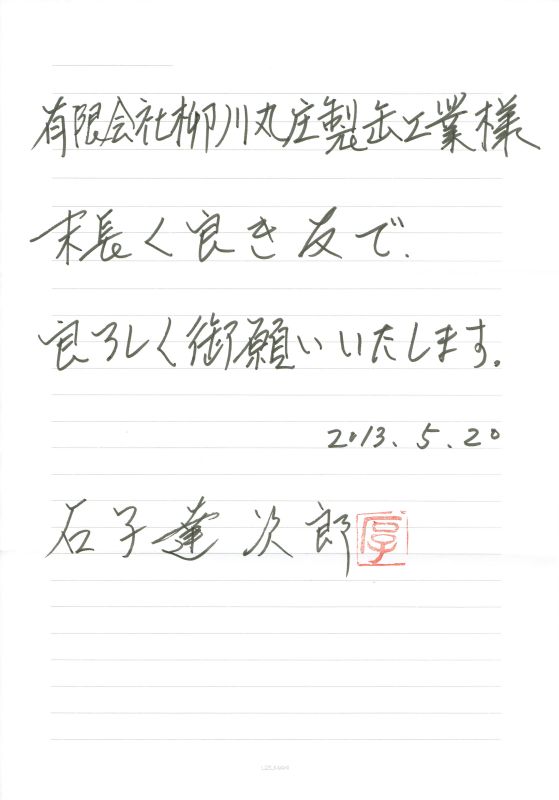 有限会社柳川丸庄製缶工業様
末長く良き友で.
良ろしく御願いいたします。
2013.5.20
石子達次郎